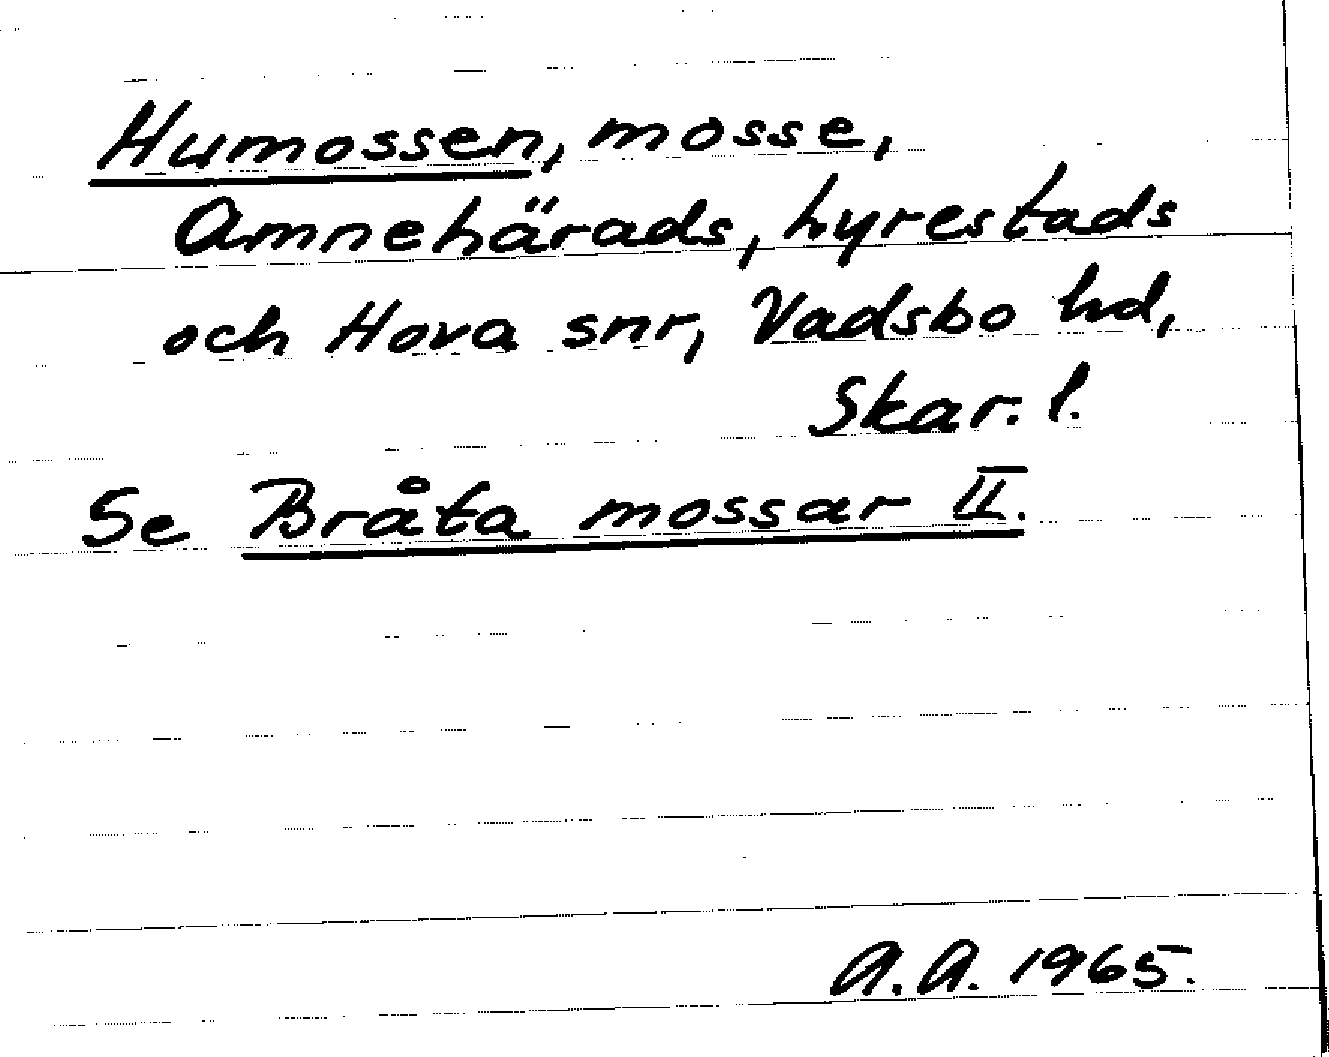 Humossen, mosse,
Amnehärads, Lyrestads
och Hova snr, Vadsbo hd,
Skar. l.
Se Bråta mossar II.
A.A. 1965.